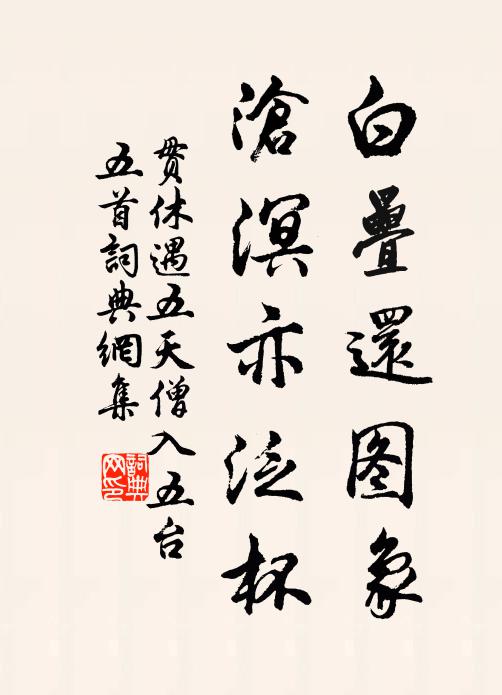 白疊還图象
滄溟亦泛杯
貫休遇五天僧入五台
五首詞典網集
詞典
网印